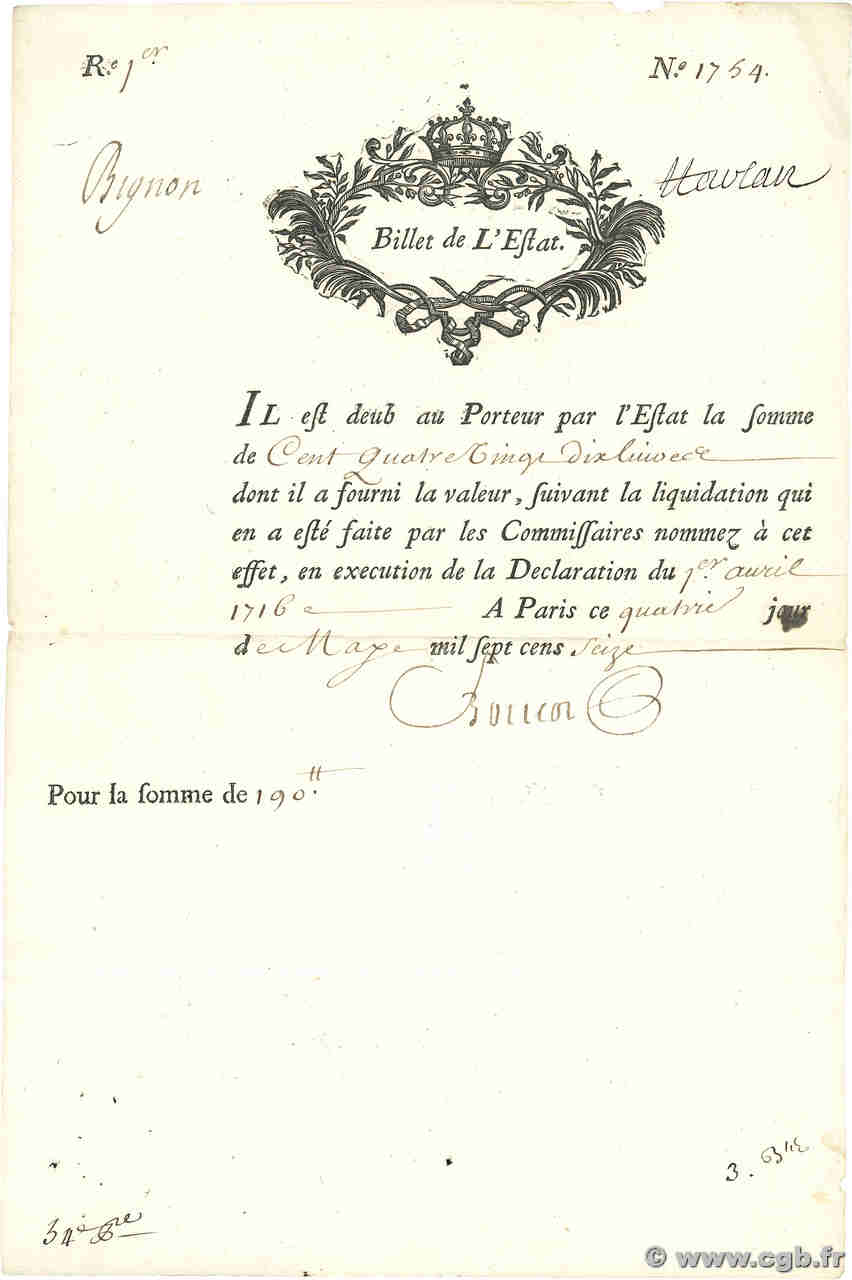 R.e 1er N.o 1754.
Bignon
Billet de L'Eſtat.
IL eſt deub au Porteur par l'Eſtat la ſomme
de Cent Quatre Vingt dix livres
dont il a fourni la valeur, ſuivant la liquidation qui
en a eſté faite par les Commiſſaires nommez à cet
effet, en execution de la Declaration du 1er auril
1716 A Paris ce quatrie jour
de May mil ſept cens Seize
Pour la ſomme de 190 tt.
3.
54e
© www.cgb.fr